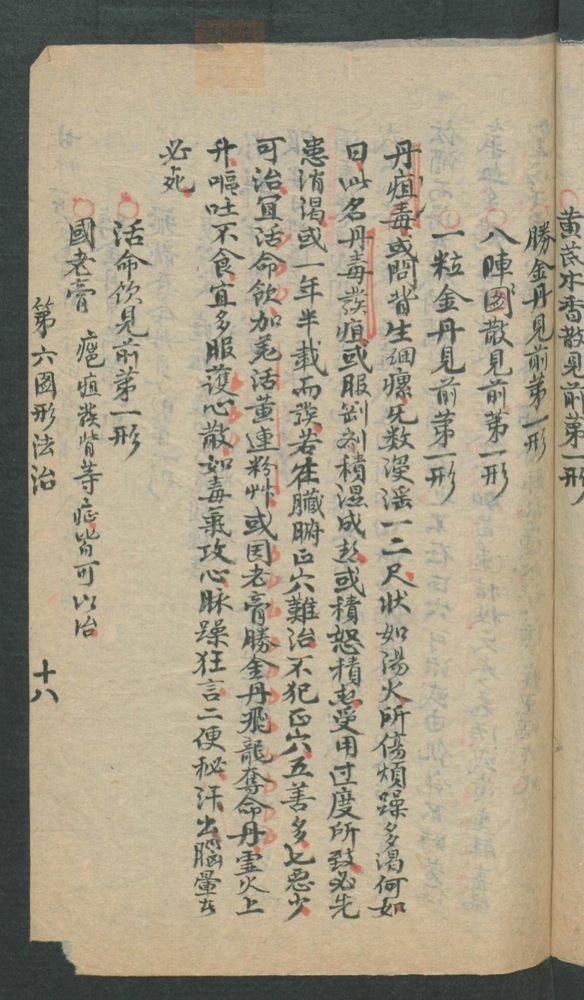 黃芪木香散見前第一形
勝金丹見前第一形
八陣圖散見前第一形
一粒金丹見前第一形
丹疽毒或問背生細瘰死数漫漫一二尺状如湯火所傷煩躁多渴何如
曰此名丹毒發疽或服剛剤積温成熱或積怒積恚受用过度所致必先
患消渴或一年半载而發若在臟腑正穴難治不犯正穴五善多七惡少
可治宜活命飲加羌活黄連粉艸或国老膏勝金丹飛龍奪命丹灵火上
升嘔吐不食宜多服護心散如毒氣攻心脉躁狂言二便秘汗出腦暈者
必死
活命飲見前第一形
國老膏 癰疽發背等症皆可以治
第六圖形法治
十八